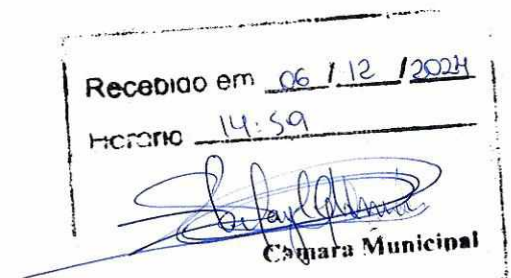 Recebido em 06 / 12 / 2024
Horário 14:59
Câmara Municipal